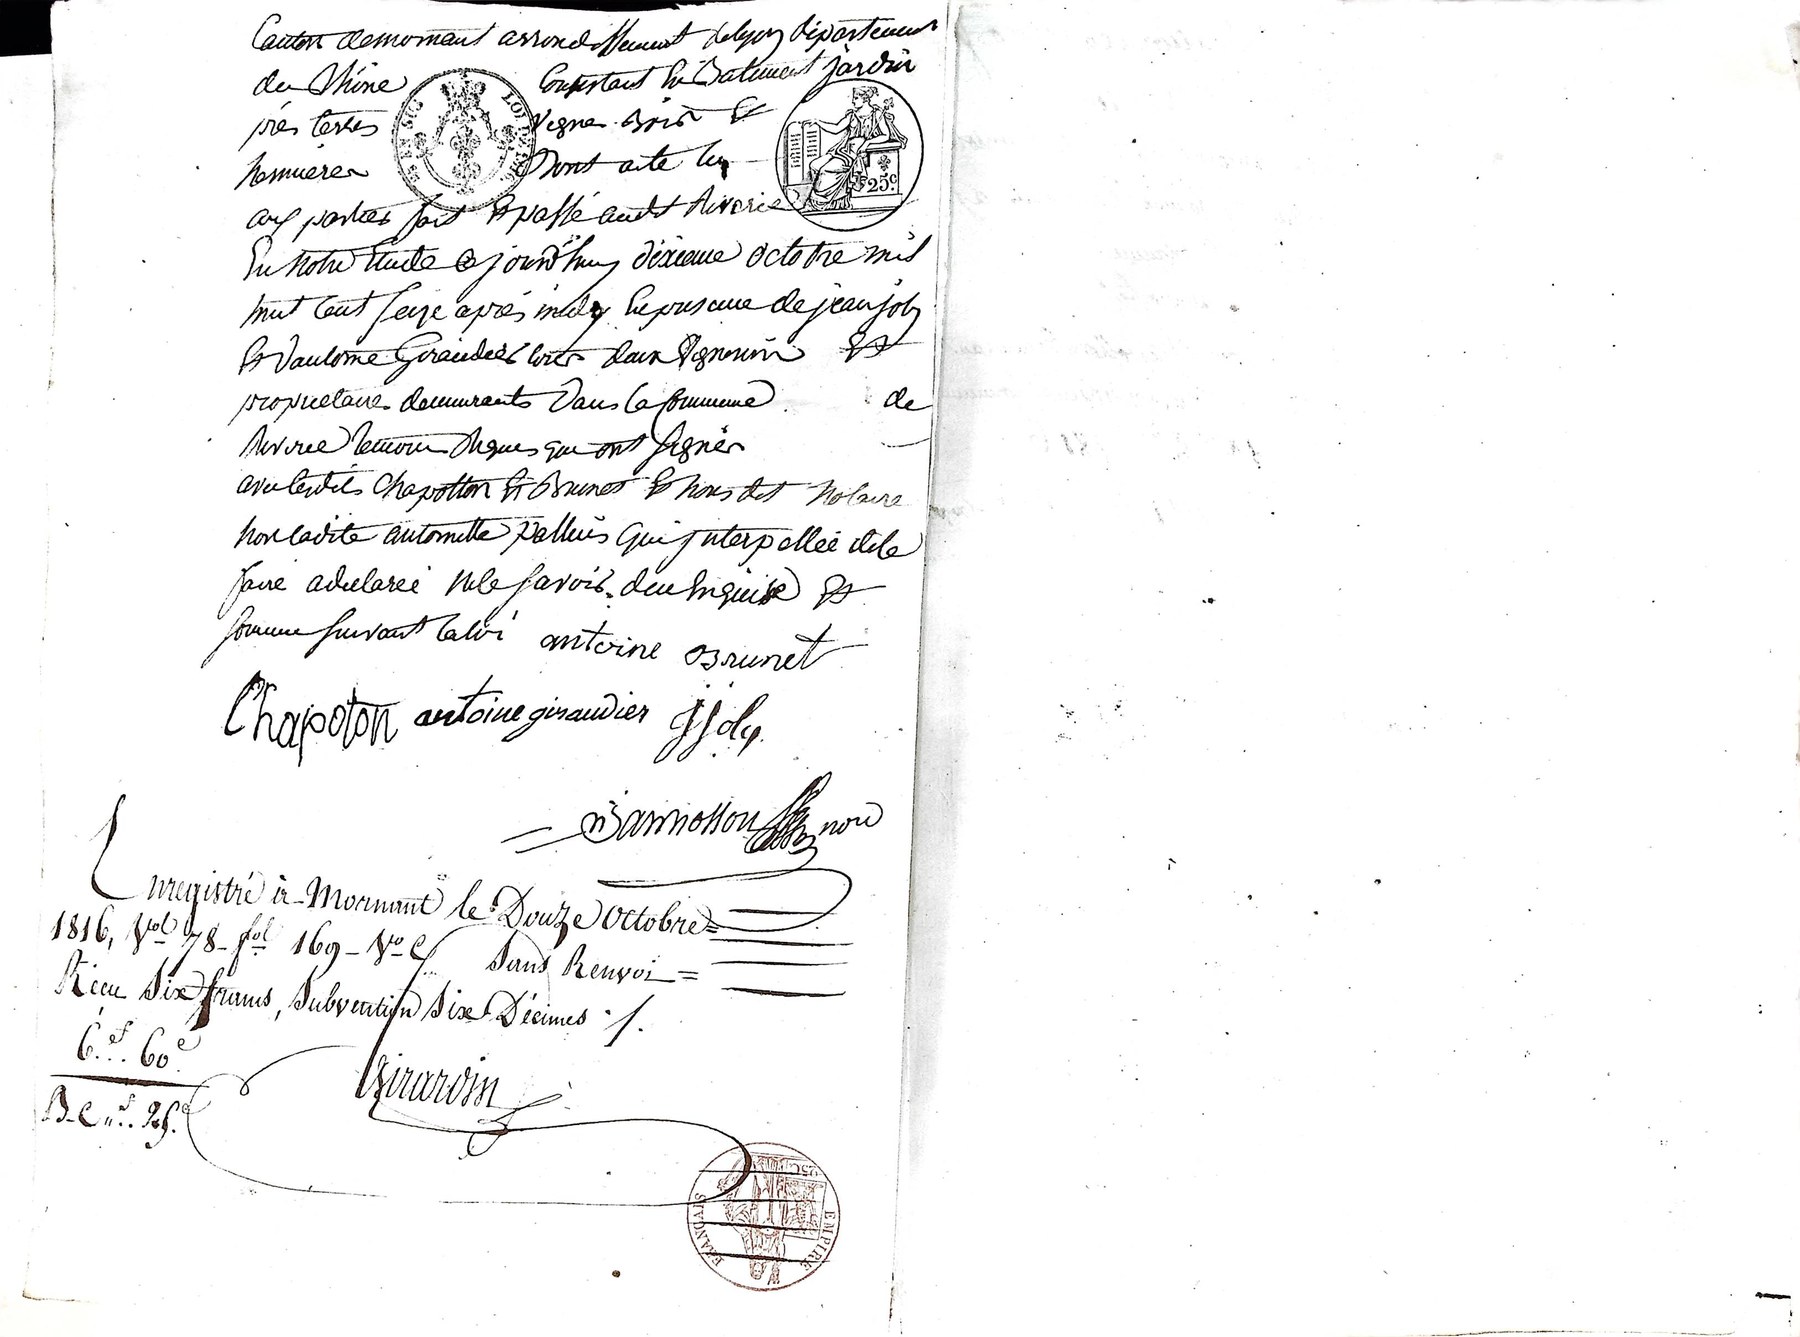 Canton demornant arrondissement delyon département
du Rhône Consistant En Batiment jardin
prés terres vignes Bois Et
hermières Dont acte lu
aux parties fait Et passé audit Riverie
En Notre Etude Cejourd'huy dixieme octobre mil
huit Cent Seize après midy En presence de jean joly
Et d'antoine Giraudier tous deux vigneron Et
proprietaires demeurants Dans la Commune de
Riverie temoins Requis qui ont Signés
avec lesdits Chapotton Et Brunet Et Nous dit Notaire
Non ladite antoinette palluis Qui jnterpellée dele
faire adeclaréé Ne le Savoir. dece Enquise Et
Sommée Suivant laloi antoine Brunet
Chapoton antoine giraudier jjoly
nore
Enregistré à Mornant le Douze Octobre=
1816, Vol. 78 fol. 169 - Vo C. Sans Renvoi =
Réçu Six francs, Subvention Six Décimes ./.
6.f.. 60c
Girardin
25c.
EMPIRE FRANÇAIS
25C